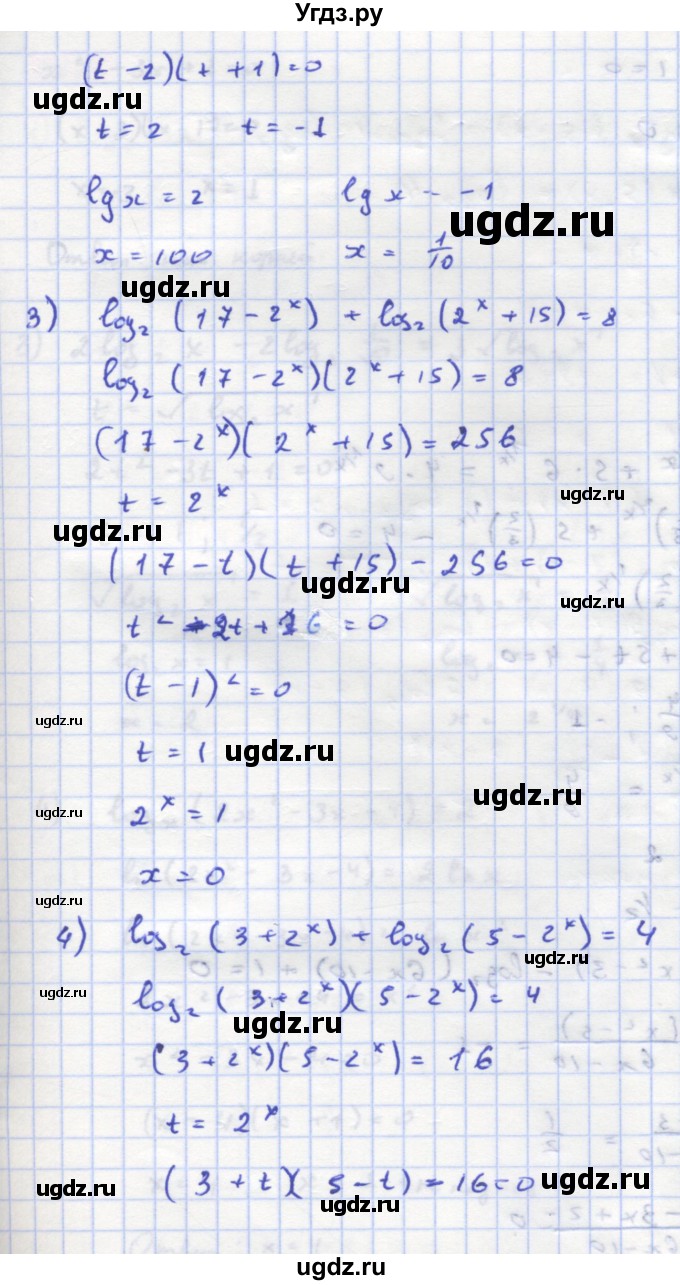 Угдз.ру
(t - 2)(t + 1) = 0
ugdz.ru
t = 2 t = -1
lg x = 2 lg x - -1
ugdz.ru
x = 100 x = 1/10
ugdz.ru
3) log₂ (17 - 2ˣ) + log₂ (2ˣ + 15) = 8
log₂ (17 - 2ˣ)(2ˣ + 15) = 8
(17 - 2ˣ)(2ˣ + 15) = 256
t = 2ˣ ugdz.ru
ugdz.ru
(17 - t)(t + 15) - 256 = 0
ugdz.ru
ugdz.ru
t² - 2t + 1 6 = 0
(t - 1)² = 0
ugdz.ru
t = 1 ugdz.ru
ugdz.ru
2ˣ = 1 ugdz.ru
x = 0
ugdz.ru
4) log₂ (3 + 2ˣ) + log₂ (5 - 2ˣ) = 4
ugdz.ru
ugdz.ru
log₂ (3 + 2ˣ)(5 - 2ˣ) = 4
ugdz.ru
(3 + 2ˣ)(5 - 2ˣ) = 16
t = 2ˣ
ugdz.ru (3 + t)(5 - t) - 16 = 0 ugdz.ru
ugdz.ru
ugdz.ru